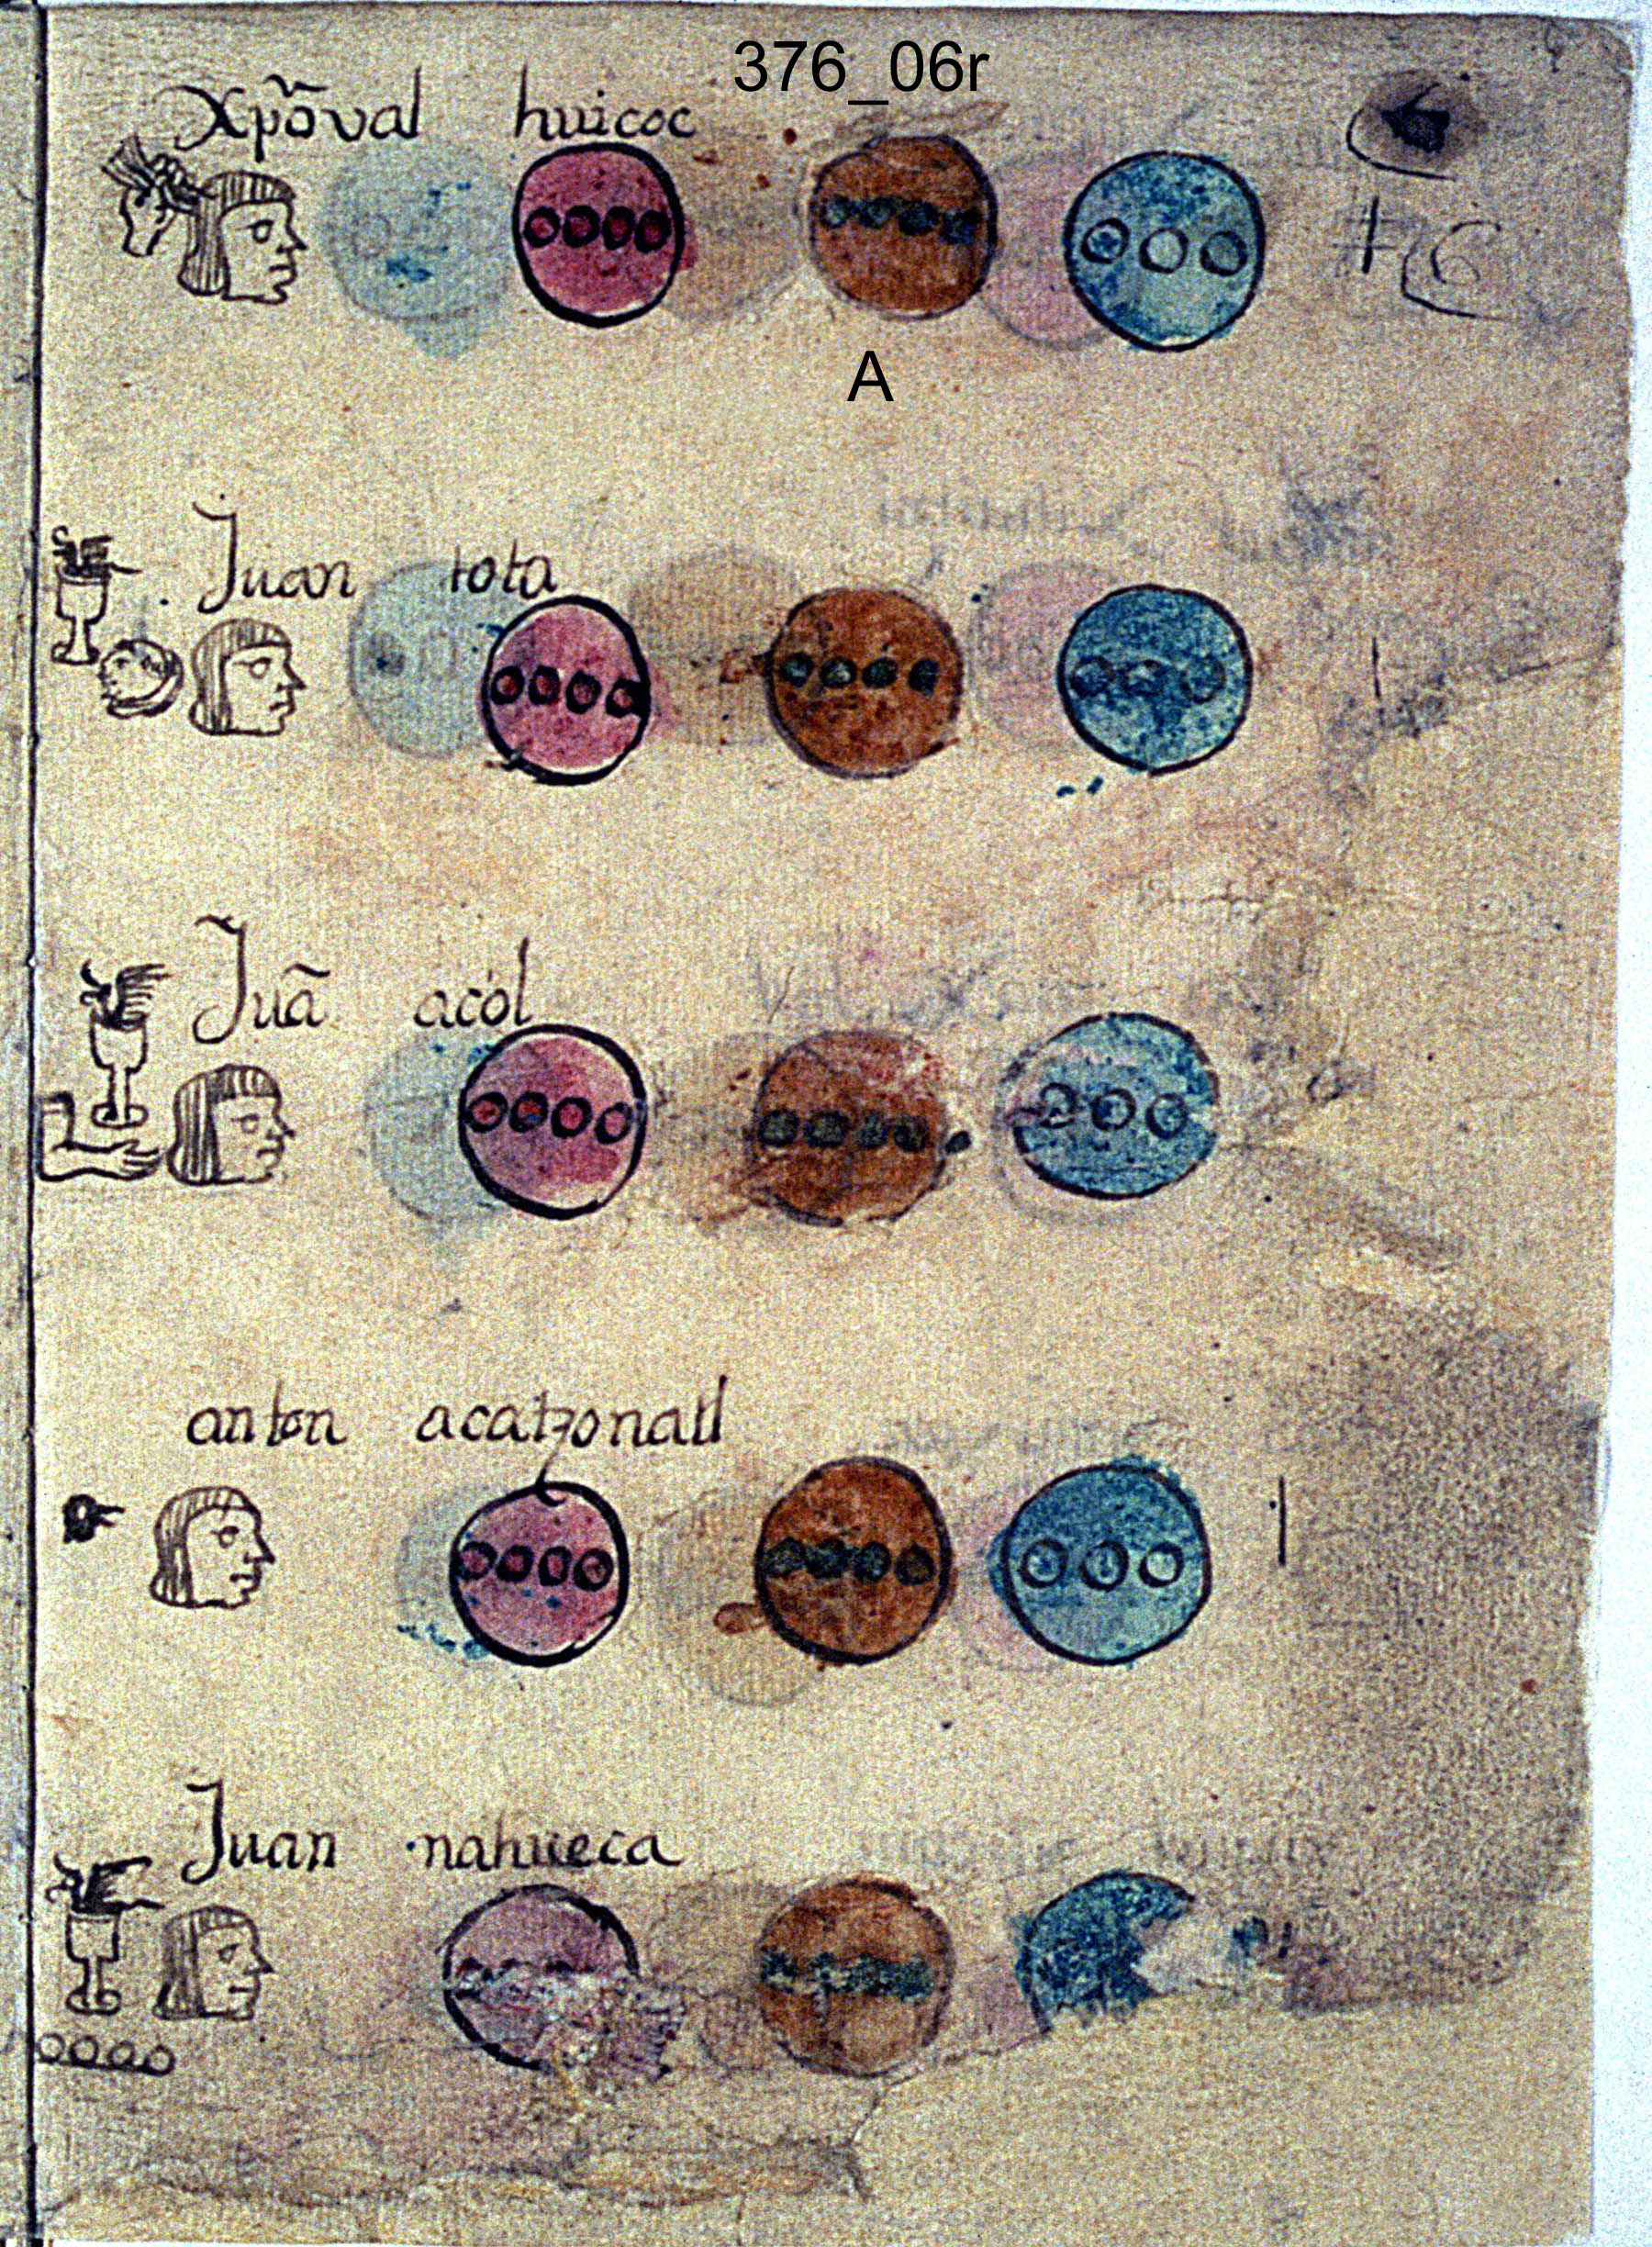 376_06r
xpõval huicoc
A
Juan tota
Juã acol
anton acatzonatl
Juan nahueca